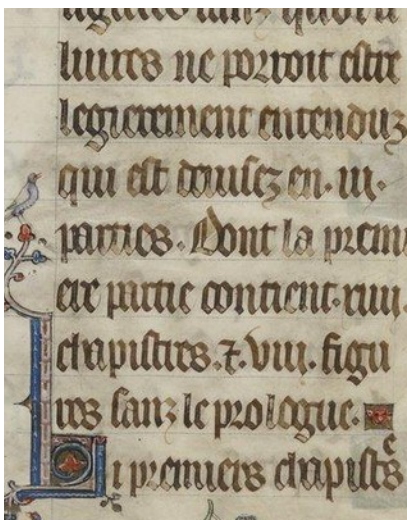 figures sanz quoi li
liures ne porroit estre
legierement entenduz
qui est deuisez en .iii.
parties. Dont la premi
ere partie contient .xiiii.
chapistres. ⁊ .viii. figu
res sanz le prologue.
Li premiers chapistres